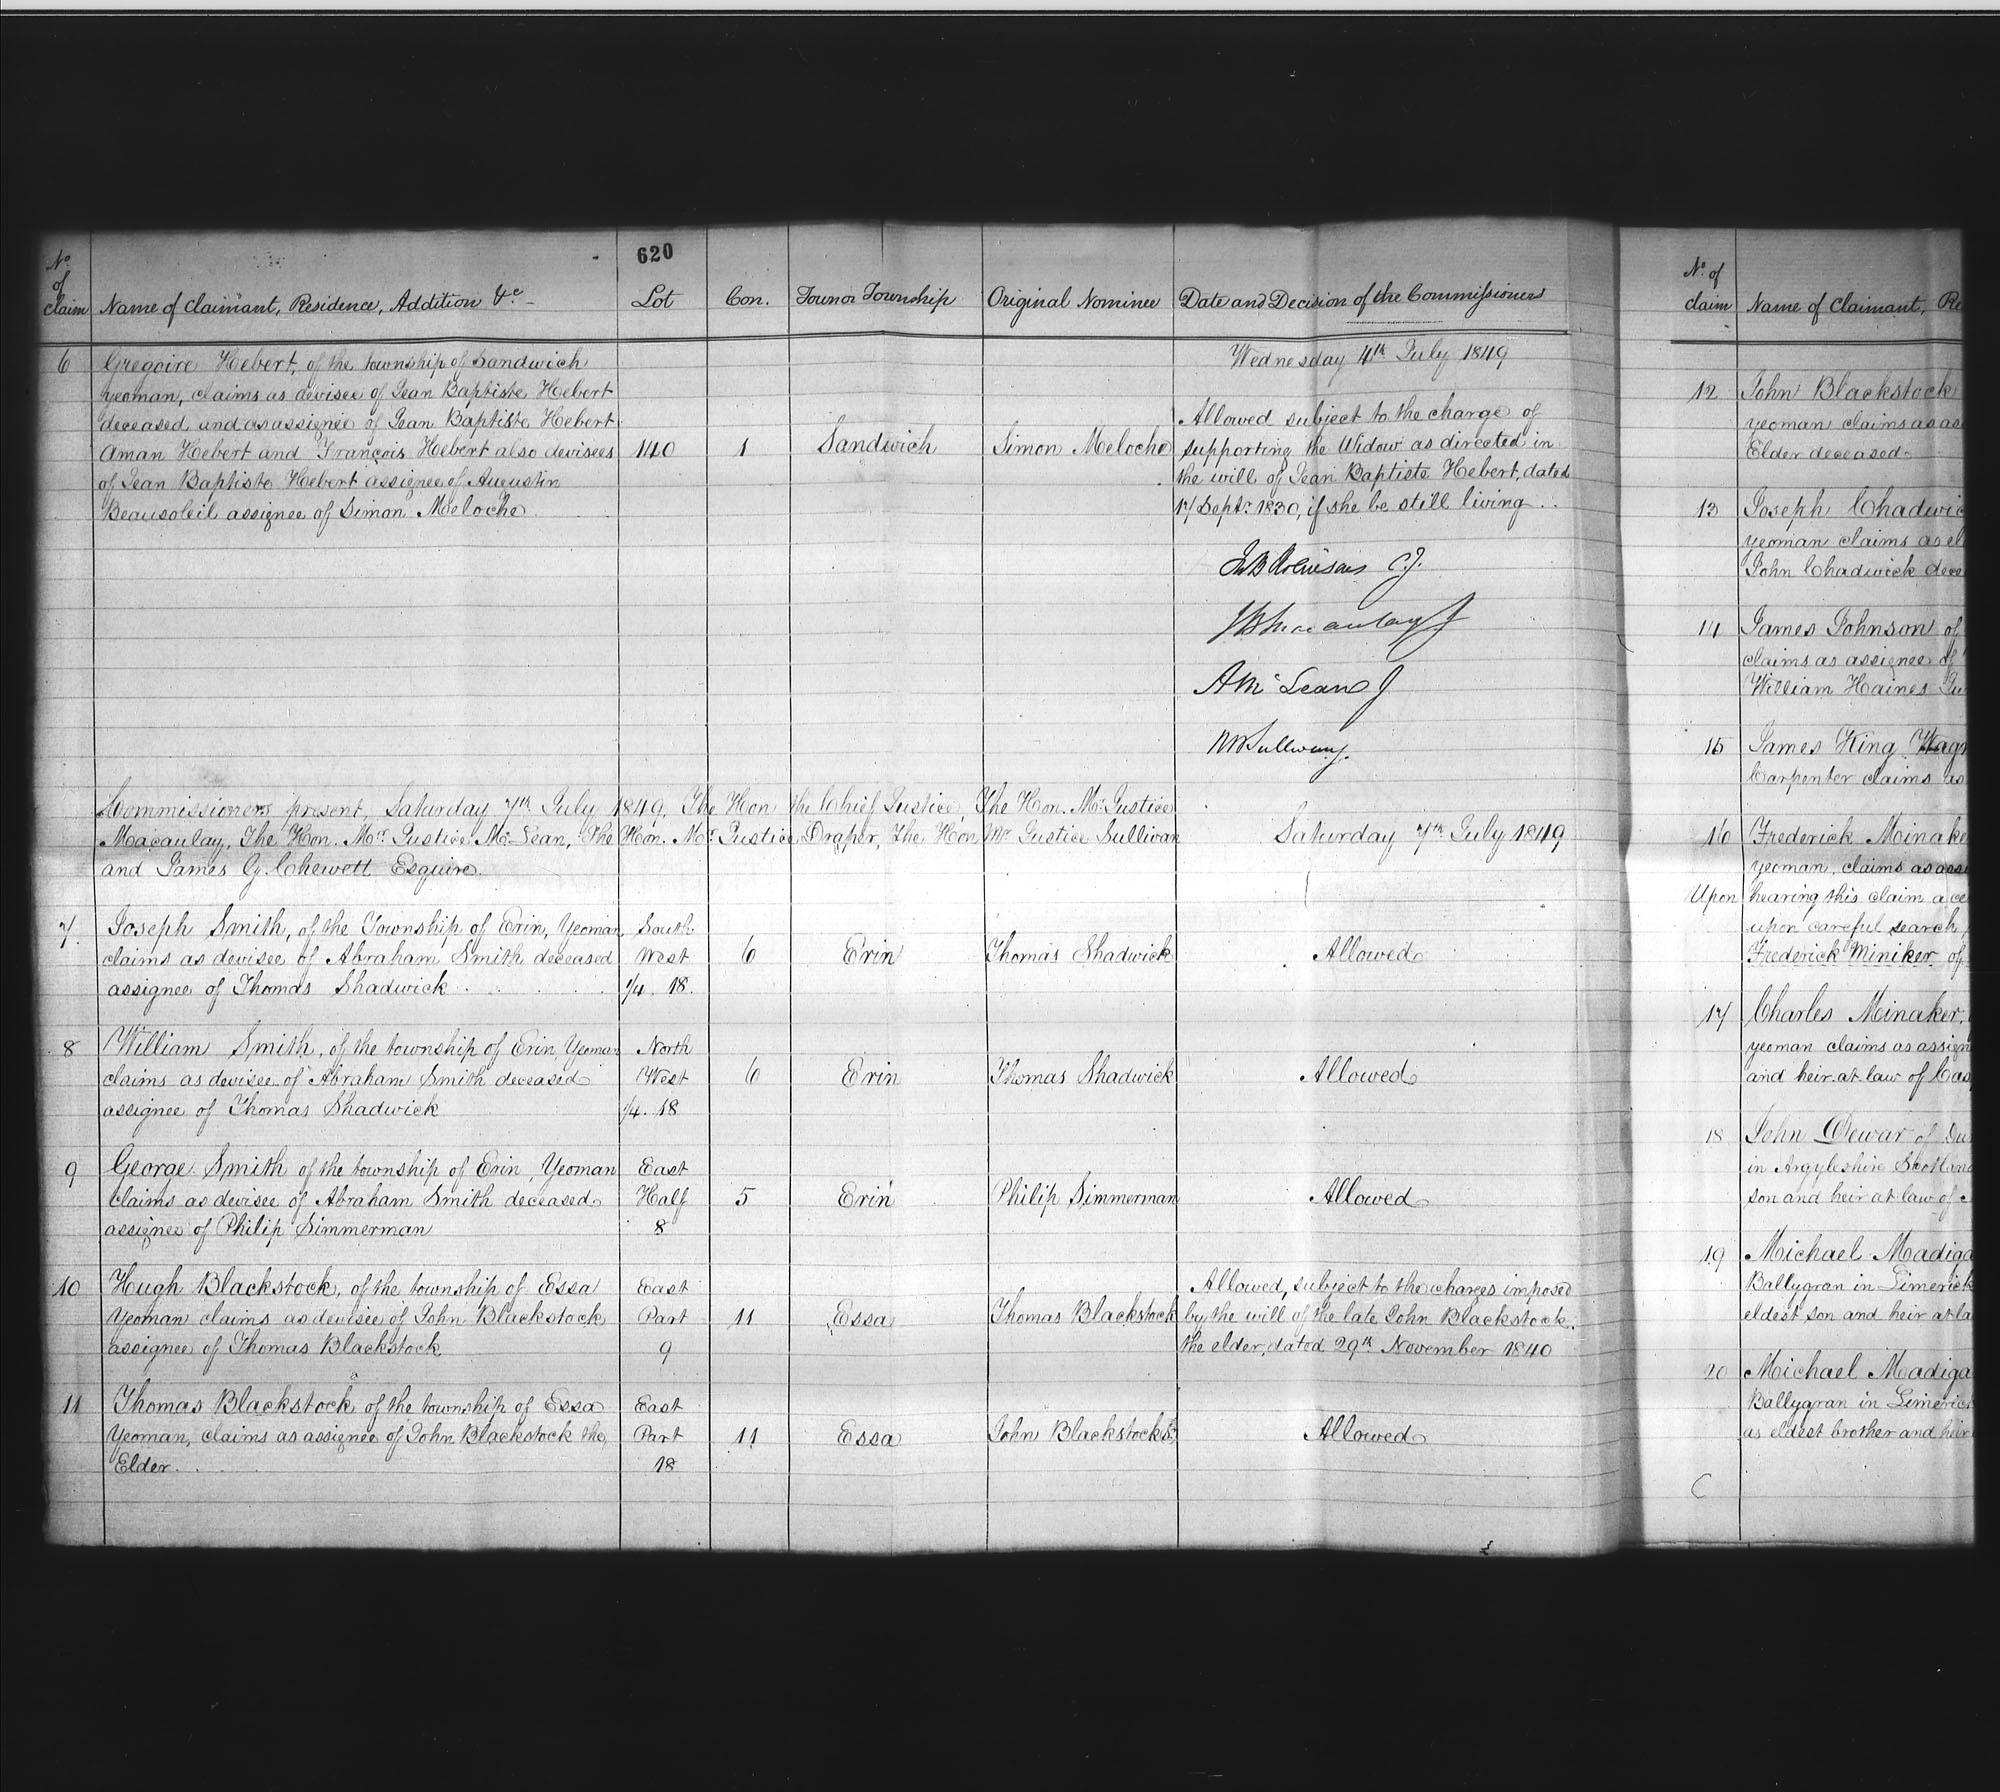 620
No of claim
Name of Claimant, Residence, Addition &c
Lot
Con.
Town or Township
Original Nominee
Date and Decision of the Commissioners
Wednesday 4th July 1849
6
Gregoire Hebert, of the township of Sandwich
yeoman, claims as devisee of Jean Baptiste Hebert
deceased and as assignee of Jean Baptiste Hebert
Aman Hebert and François Hebert also devisees
of Jean Baptiste Hebert assignee of Augustin
Beausoleil assignee of Simon Meloche
140
1
Sandwich
Simon Meloche
Allowed subject to the charge of
supporting the Widow as directed in
the will of Jean Baptiste Hebert, dated
17 Septr 1830, if she be still living
Jno B Robinson C.J.
J B Macaulay J
A McLean J
R B Sullivan J.
Commissioners present, Saturday 7th July 1849, The Hon the Chief Justice, The Hon. Mr Justice
Macaulay, The Hon. Mr Justice McLean, The Hon. Mr Justice Draper, the Hon Mr Justice Sullivan
and James G. Chewett Esquire.
Saturday 7th July 1849
7.
Joseph Smith, of the Township of Erin, Yeoman
claims as devisee of Abraham Smith deceased
assignee of Thomas Shadwick
South
West
1/4. 18.
6
Erin
Thomas Shadwick
Allowed
8
William Smith, of the township of Erin, Yeoman
claims as devisee of Abraham Smith deceased
assignee of Thomas Shadwick
North
West
1/4. 18
6
Erin
Thomas Shadwick
Allowed
9
George Smith of the township of Erin, Yeoman
claims as devisee of Abraham Smith deceased
assignee of Philip Simmerman
East
Half
8
5
Erin
Philip Simmerman
Allowed
10
Hugh Blackstock, of the township of Essa
Yeoman claims as devisee of John Blackstock
assignee of Thomas Blackstock
East
Part
9
11
Essa
Thomas Blackstock
Allowed, subject to the charges imposed
by the will of the late John Blackstock
the elder, dated 29th November 1840
11
Thomas Blackstock of the township of Essa
Yeoman, claims as assignee of John Blackstock the
Elder.
East
Part
18
11
Essa
John Blackstock
Allowed
No. of claim
Name of Claimant, Re
12
John Blackstock
yeoman claims as as
Elder deceased
13
Joseph Chadwic
yeoman claims as el
John Chadwick dece
14
James Johnson of
claims as assignee of
William Haines
15
James King
Carpenter claims as
16
Frederick Minake
yeoman, claims as assi
Upon hearing this claim a ce
upon careful search
Frederick Miniker of
17
Charles Minaker,
yeoman claims as assign
and heir at law of Cas
18
John Dewar of Du
in Argyleshire Scotland
son and heir at law of
19
Michael Madiga
Ballygran in Limerick
eldest son and heir at la
20
Michael Madiga
Ballygran in Limerick
as eldest brother and heir
C